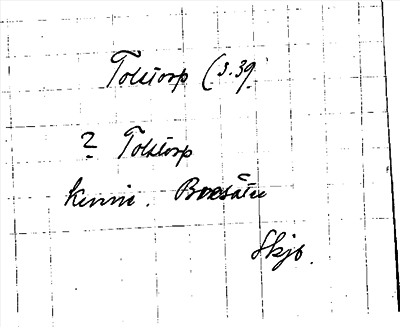 Tolstorp (s. 39.
? Tolstorp
Kinne. Boesäter
Skjö.